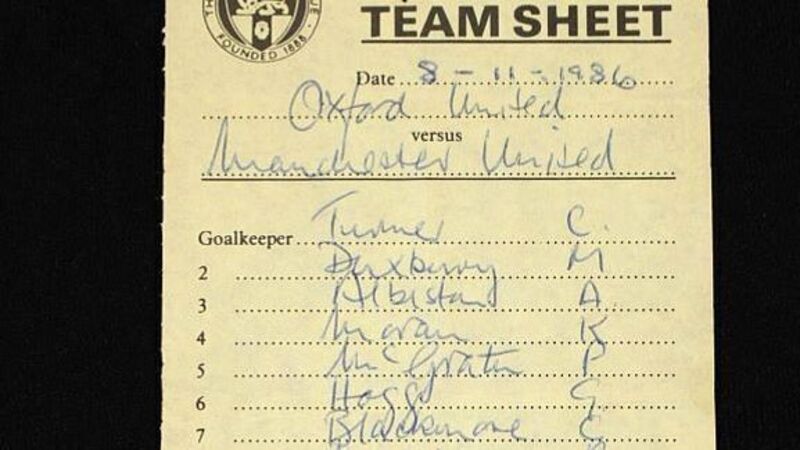 TH UE
FOUNDED 1888
TEAM SHEET
Date 8-11-1986
Oxford United
versus
Manchester United
Goalkeeper Turner C.
2 Duxbury M
3 Albiston A
4 Moran K
5 McGrath P
6 Hogg G
7 Blackmore C